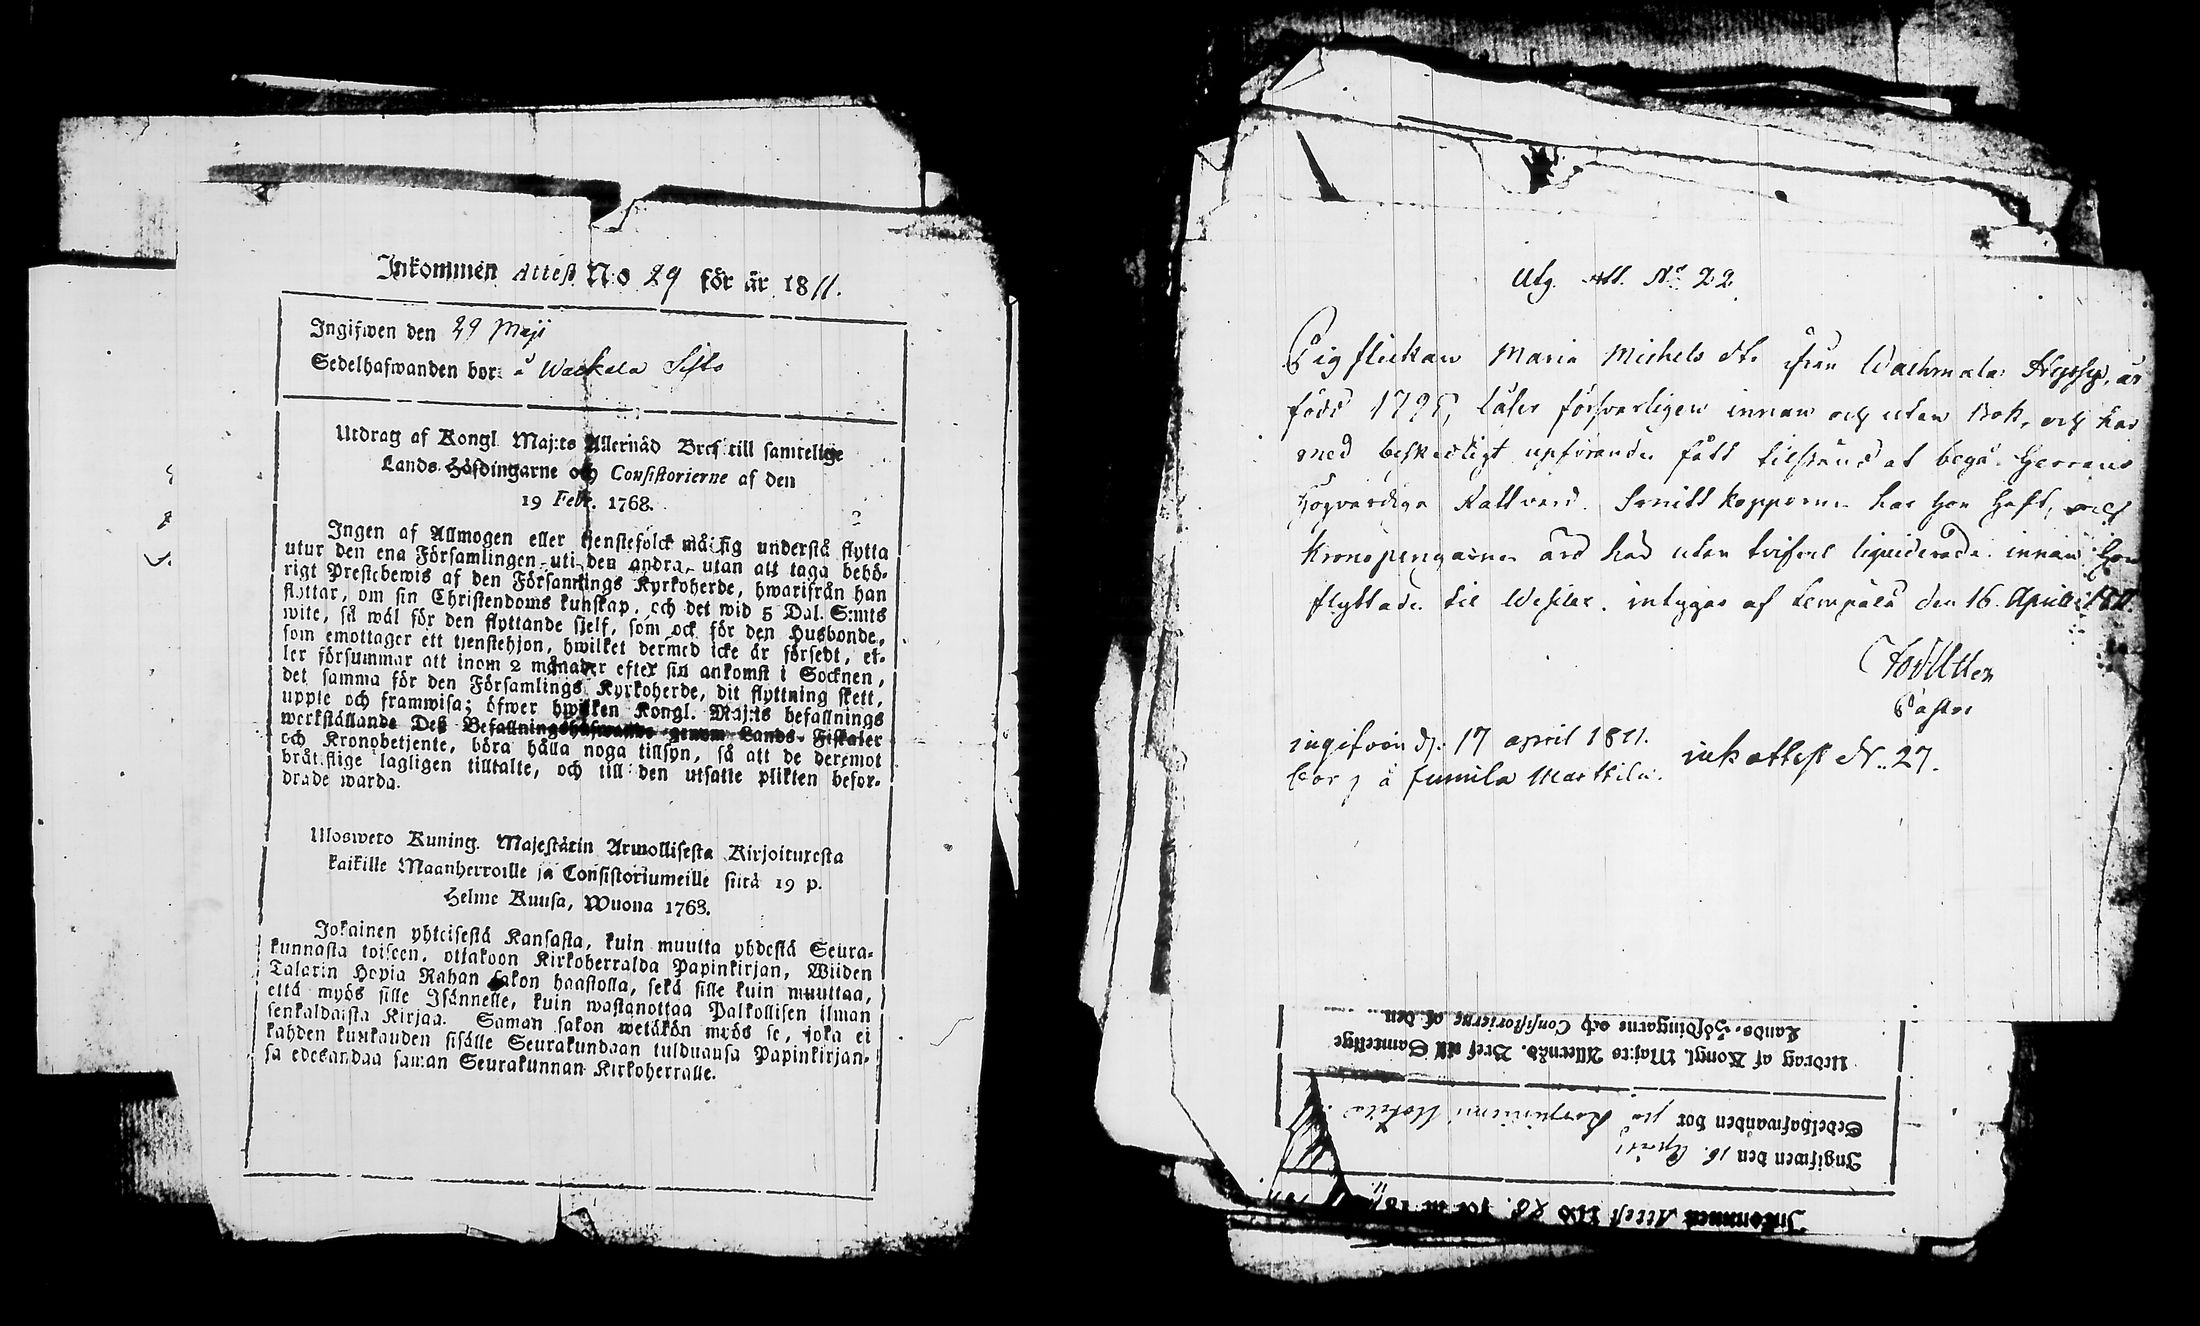 Inkommen Attest N:o 29 för år 1811.
Ingifwen den 29 Maji
Sedelhafwanden bor: å Wackala Sifto
Utdrag af Kongl. Maj:ts Allernåd Bref till samtelige
Lands-Höfdingarne och Consistorierne af den
19 Febr. 1768.
Ingen af Allmogen eller tjenstefolck må sig understå flytta
utur den ena Församlingen uti den andra, utan att taga behö-
rigt Prestebewis af den Församlings Kyrkoherde, hwarifrån han
flyttar, om sin Christendoms kunskap, och det wid 5 Dal. S:mts
wite, så wäl för den flyttande sjelf, som ock för den Husbonde,
som emottager ett tjenstehjon, hwilket dermed icke är försedt, el-
ler försummar att inom 2 månader efter sin ankomst i Socknen,
det samma för den Församlings Kyrkoherde, dit flyttning skett,
uppte och framwisa; öfwer hwilken Kongl. Maj:ts befallnings
werkställande Deß Befallningshafwande genom Lands-Fiskaler
och Kronobetjente, böra hålla noga tillsyn, så att de deremot
bråtslige lagligen tilltalte, och till den utsatte plikten befor-
drade warda.
Ulosweto Kuning. Majestätin Armollisesta Kirjoituxesta
kaikille Maanherroille ja Consistoriumeille siitä 19 p.
Helme Kuusa, Wuona 1768.
Jokainen yhteisestä Kansasta, kuin muutta yhdestä Seura-
kunnasta toiseen, ottakoon Kirkoherralda Papinkirjan, Wiiden
Talarin Hopia Rahan sakon haastolla, sekä sille kuin muuttaa,
että myös sille Isännelle, kuin wastanottaa Palkollisen ilman
senkaldaista Kirjaa. Saman sakon wetäkön myös se, joka ei
kahden kuukauden sisälle Seurakundaan tulduansa Papinkirjan-
sa edesandaa saman Seurakunnan Kirkoherralle.
Utg. Att. N:o 22
Pigflickan Maria Michels dtr ifrån Wachmala Heyssy, är
född 1795, läser försvarligen innan och utan Bok, och har
med beskedligt upförande fått tilstånd at begå Herrans
Högvärdiga Nattvard. Smittkopporna har hon haft, och
Kronopengarna ärd här utan tvifvel liquiderade innan hon
flyttade til Wesilax. intygas af Lempälä den 16. Aprill 1811.
Pastor
ingifven d. 17 april 1811.
bor å Jumila Marttila.
ink attest N. 27.
Inkommen Attest N:o 28. för år 1811.
Ingifwen den 16. April
Sedelhafwanden bor på
Utdrag af Kongl. Maj:ts Allernåd. Bref till Samtelige
Lands-Höfdingarne och Consistorierne af den